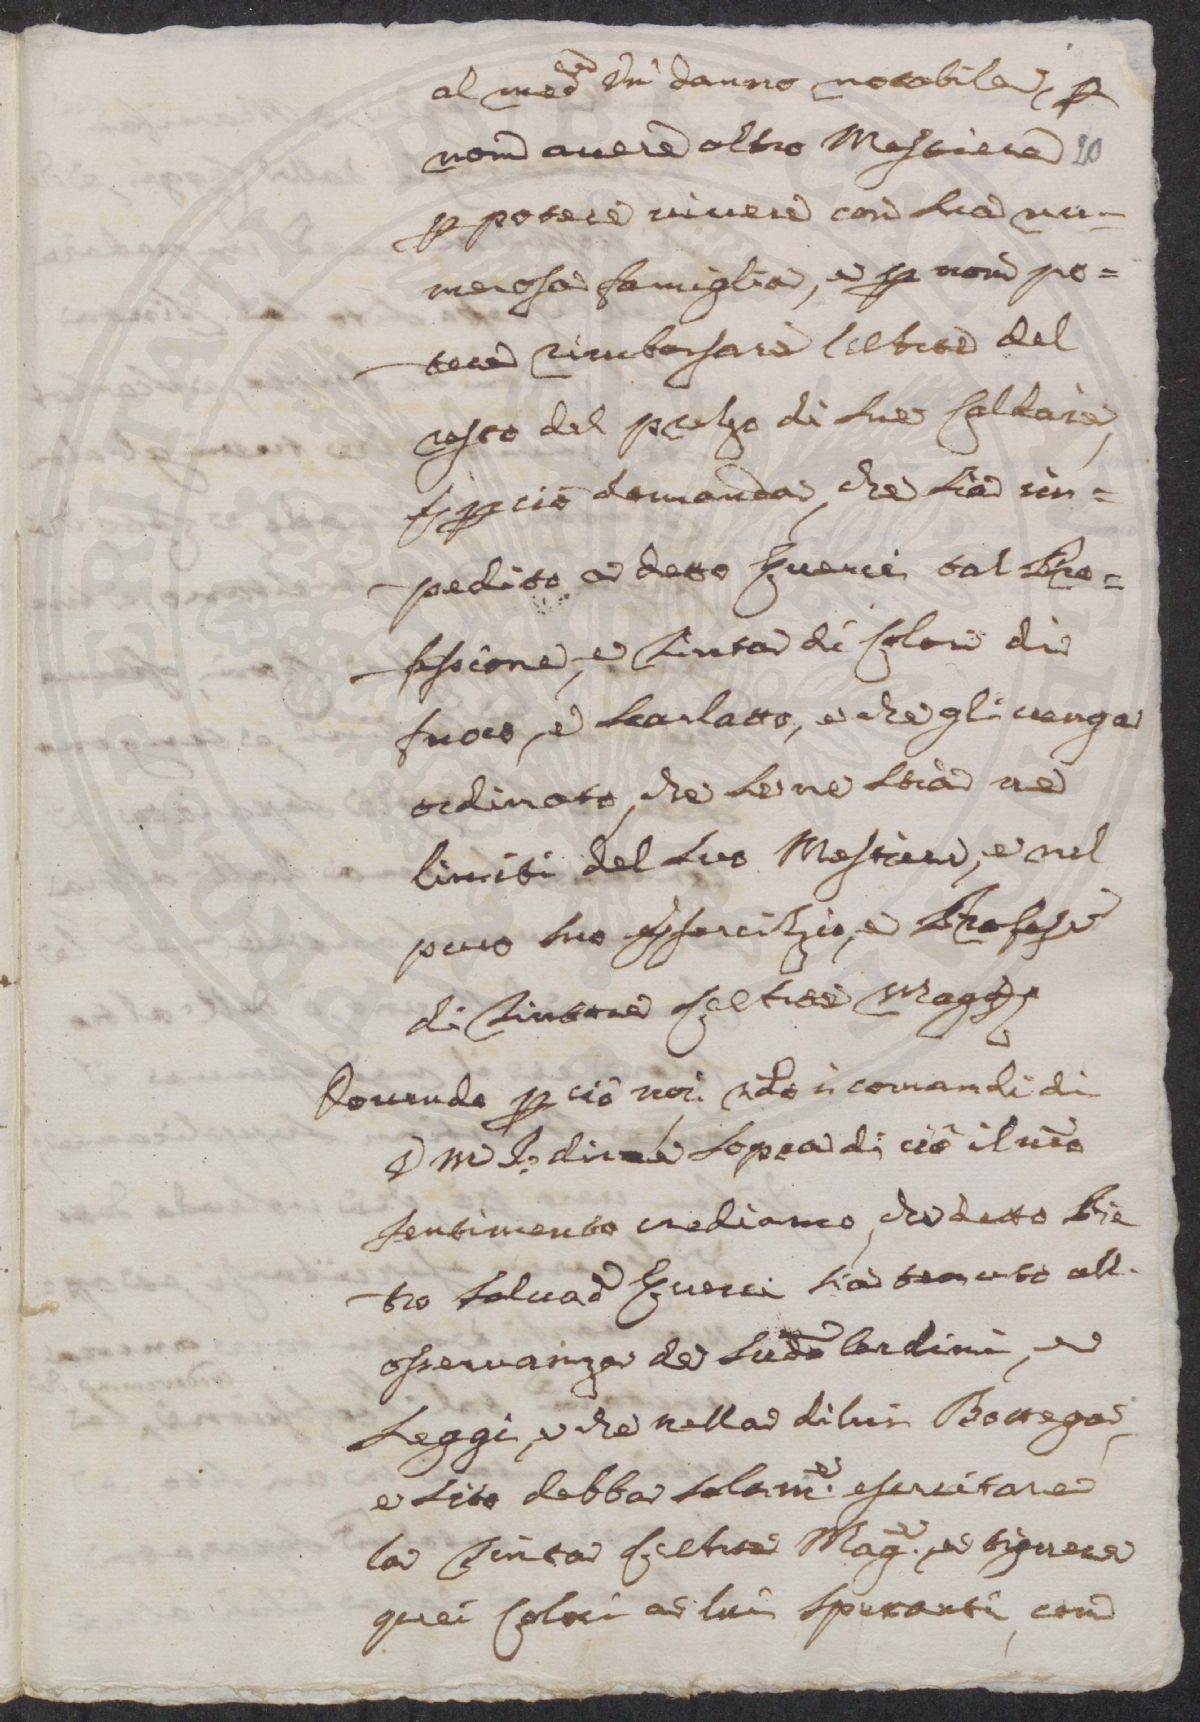 al med.º un danno notabile, p
non auere altro Mestiere 20
p potere uiuere con sua nu-
merosa famiglia, e p non po=
tere rimborsare l'eltrè del
resto del prezzo di sue Caldare,
e p ciò domanda, che sia im=
pedito a detto Guerci tal Pro=
fessione, e Tinta di Colori di
fuoco, e Scarlatto, e che gli uenga
ordinato, che se ne stia nè
limiti del suo Mestiere, e nel
puro suo essercizio, e Profess.e
di Tintore Magg.e
Douendo p ciò noi sdo i comandi di
V M I. dire sopra di ciò il nro
sentimento crediamo, che detto Pie
tro Saluad.e Guerci sia tenuto all'
osseruanza de sud.i ordini, e
Leggi, e che nella di lui Bottega,
e sito debba solam.e esercitare
la Tinta Mag.e, e tignere
quei Colori a lui spetanti, con